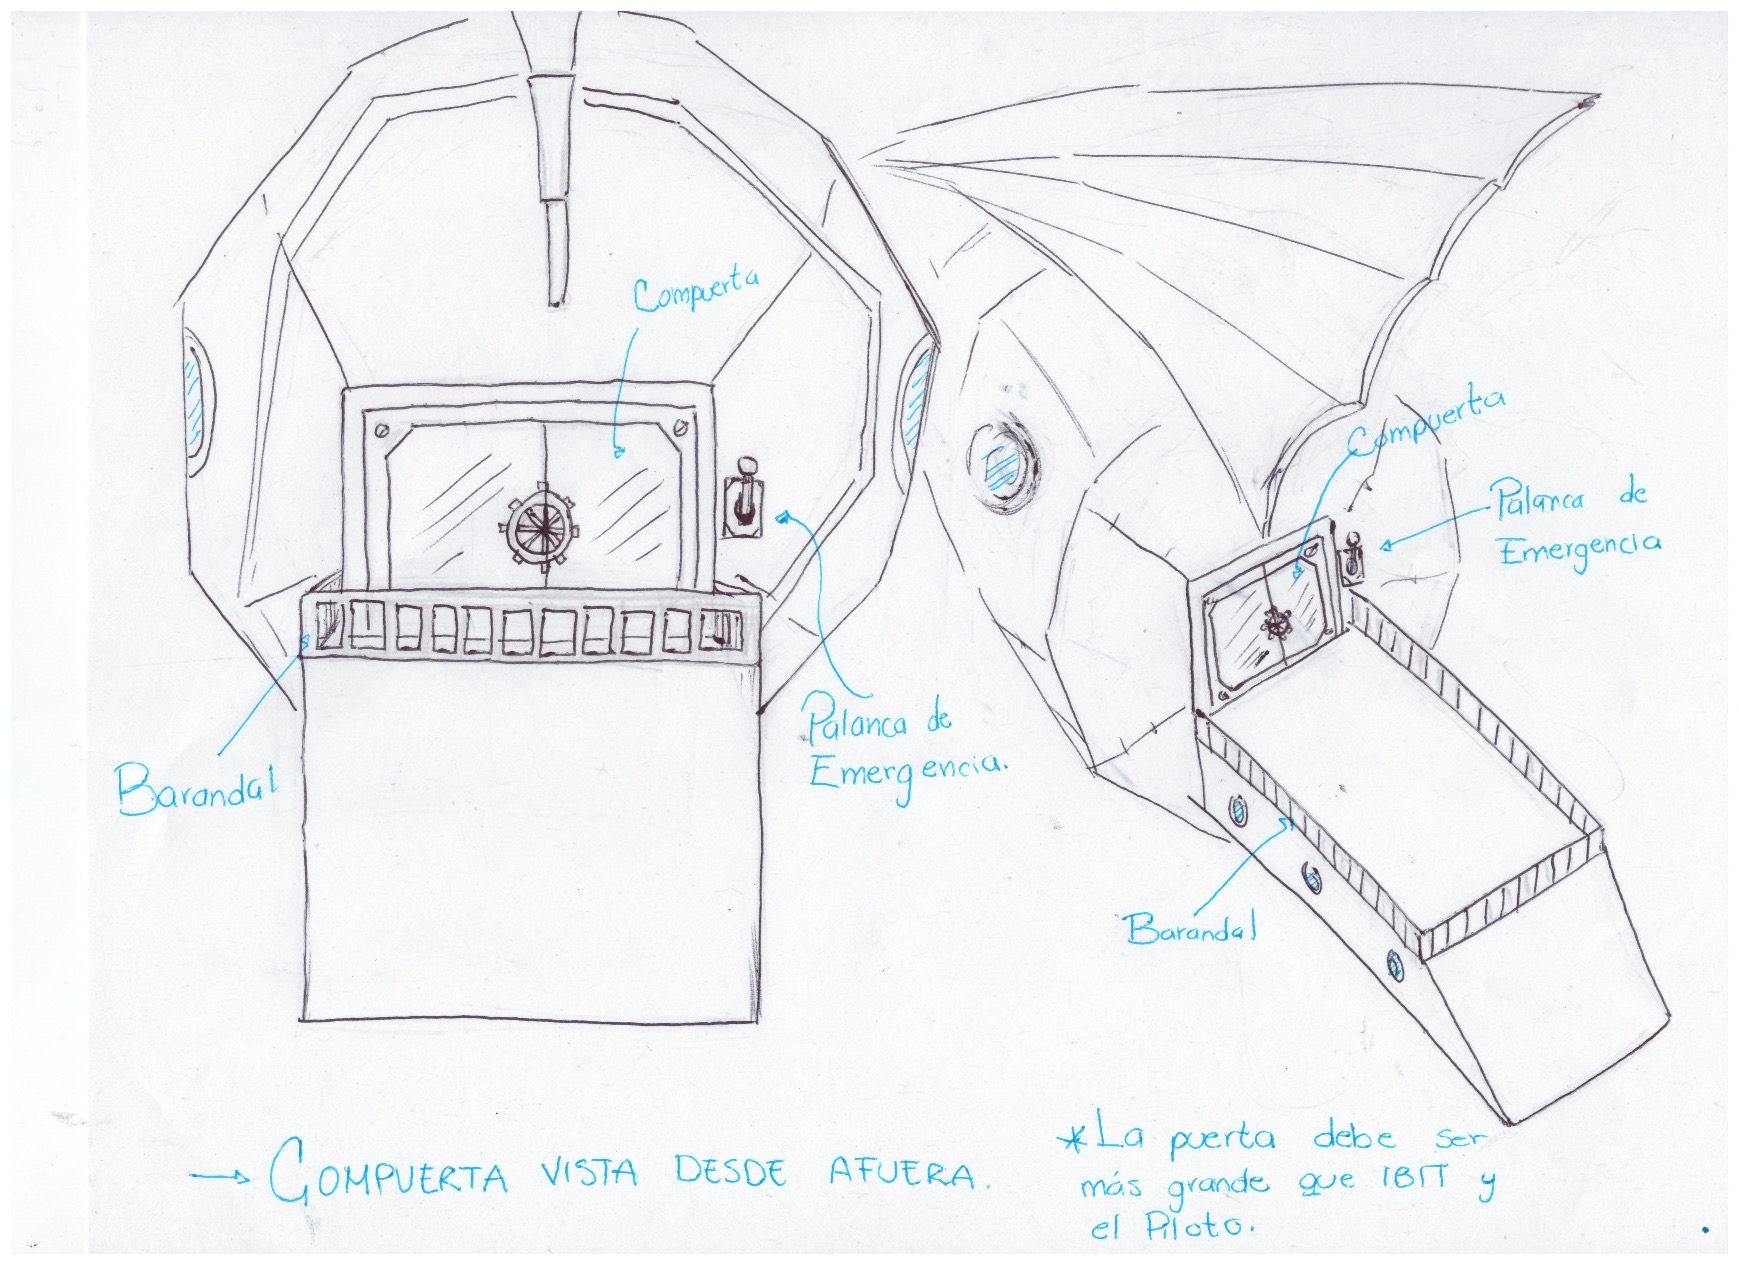 Compuerta
Palanca de
Emergencia.
Barandal
Compuerta
Palanca de
Emergencia
Barandal
→ COMPUERTA VISTA DESDE AFUERA.
* La puerta debe ser
más grande que 1B1T y
el Piloto.